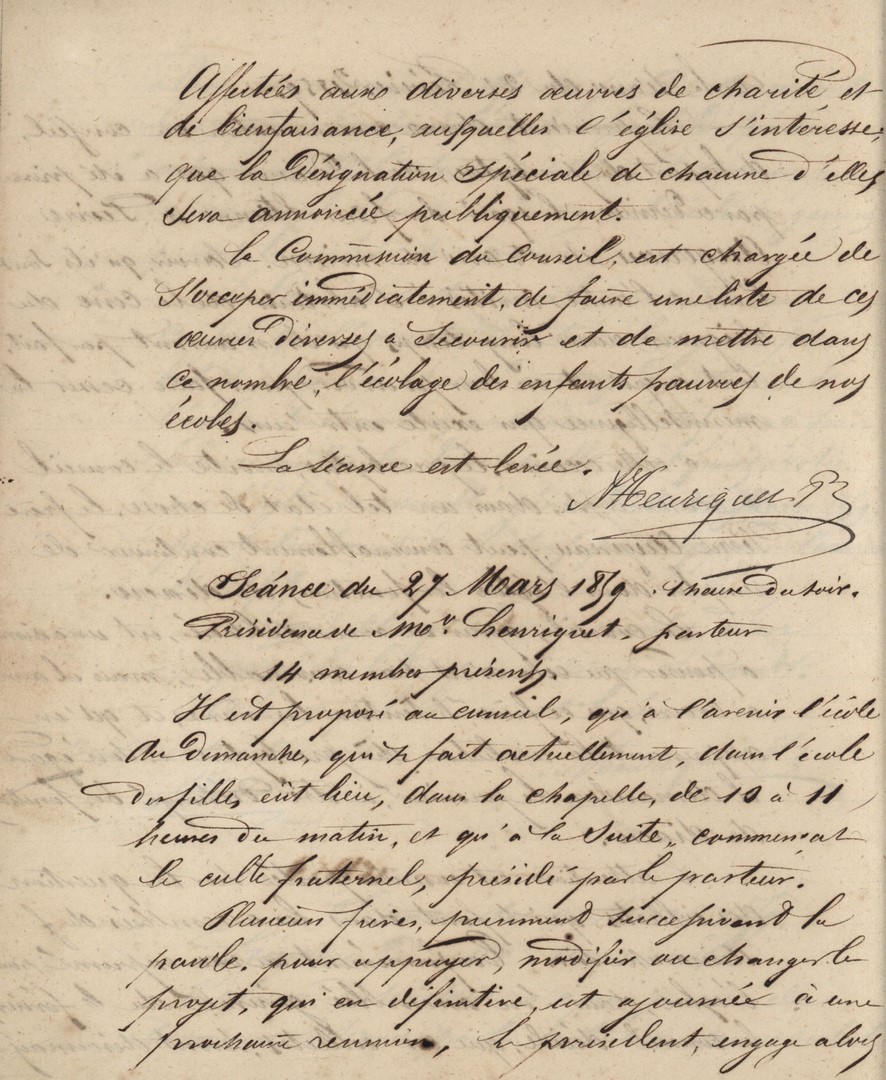 Affectées aux diverses œuvres de charité et
de bienfaisance, auxquelles l'église s'intéresse,
que la Désignation Spéciale de chacune d'elles
sera annoncée publiquement.
la Commission du Conseil, est chargée de
s'occuper immédiatement, de faire une liste de ces
œuvres diverses à Secourir et de mettre dans
ce nombre, l'écolage des enfants pauvres de nos
écoles.
La séance est levée.
Henriquet P.
Séance du 27 Mars 1859. 1 heure du soir.
Présidence de Mor. henriquet. pasteur
14 membres présents.
Il est proposé au conseil, qu'à l'avenir l'école
du Dimanche, qui se fait actuellement, dans l'école
des filles, eût lieu, dans la chapelle, de 10 à 11
heures du matin, et qu'à la Suite, commençat
le culte fraternel, présidé par le pasteur.
Plusieurs frères, prennent successivement la
parole. pour appuyer, modifier ou changer le
projet, qui en définitive, est ajournée à une
prochaine reunion, le president, engage alors